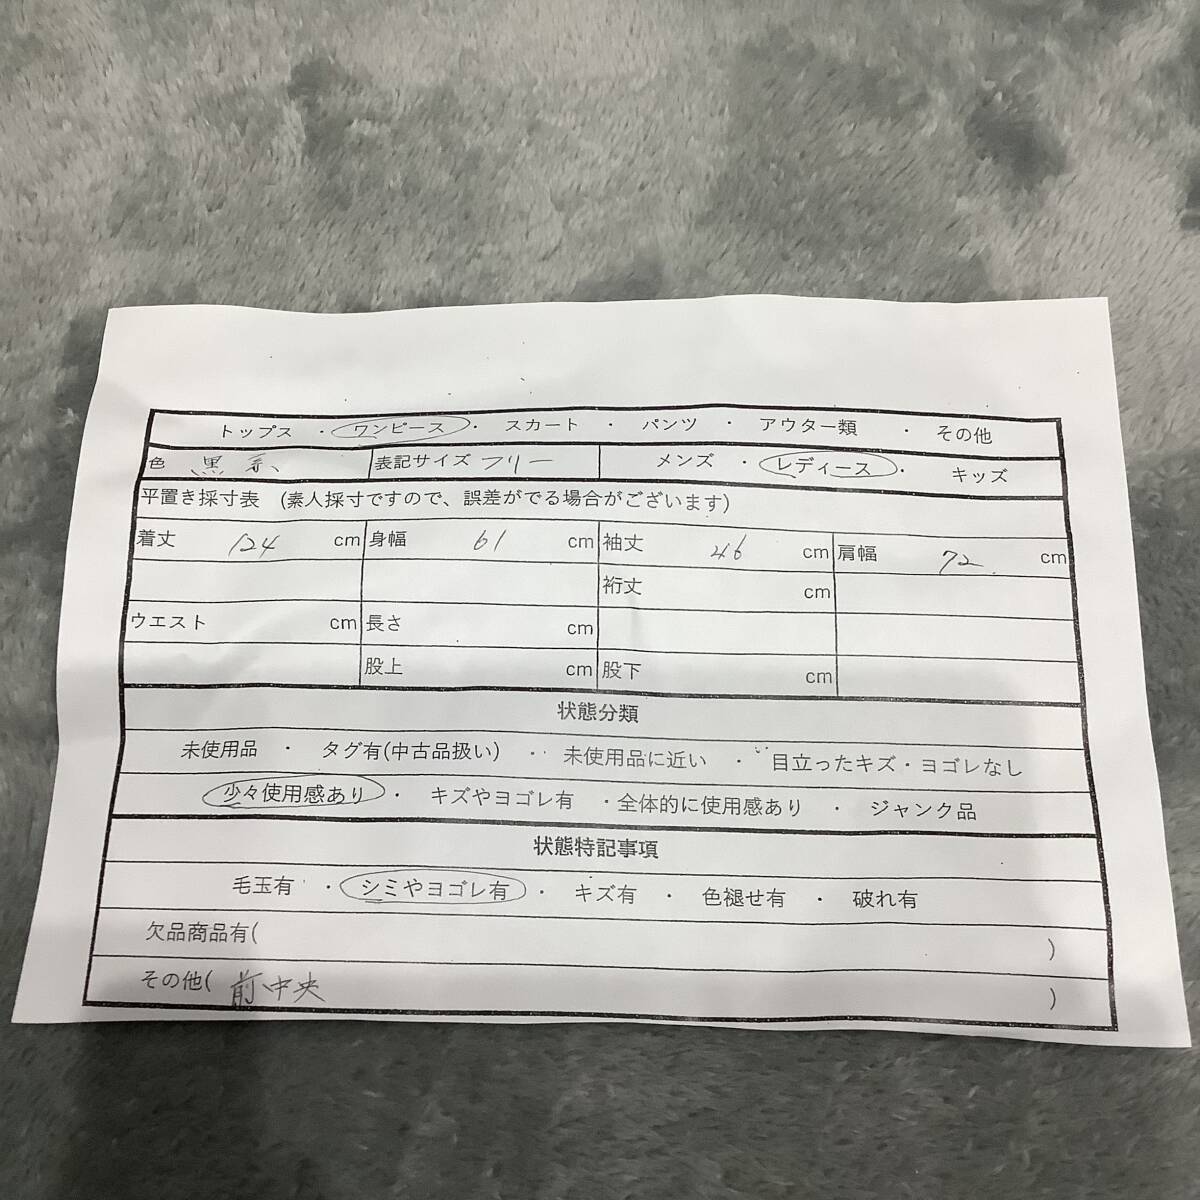 トップス ・ ワンピース ・ スカート ・ パンツ ・ アウター類 ・ その他
色 黒系 表記サイズ フリー メンズ ・ レディース ・ キッズ
平置き採寸表 (素人採寸ですので、誤差がでる場合がございます)
着丈 124 cm 身幅 61 cm 袖丈 46 cm 肩幅 72 cm
裄丈 cm
ウエスト cm 長さ cm
股上 cm 股下 cm
状態分類
未使用品 ・ タグ有(中古品扱い) ・ 未使用品に近い ・ 目立ったキズ・ヨゴレなし
少々使用感あり ・ キズやヨゴレ有 ・全体的に使用感あり ・ ジャンク品
状態特記事項
毛玉有 ・ シミやヨゴレ有 ・ キズ有 ・ 色褪せ有 ・ 破れ有
欠品商品有( )
その他( 前中央 )